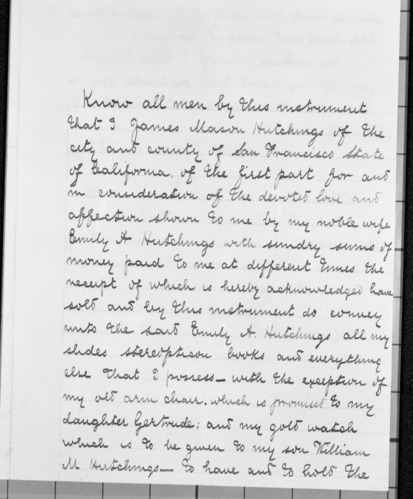 Know all men by this instrument
that I James Mason Hutchings of the
city and county of San Francisco State
of California. of the first part for and
in consideration of the devoted love and
affection shown to me by my noble wife
Emily A Hutchings with sundry sums of
money paid to me at different times the
receipt of which is hereby acknowledged have
sold and by this instrument do convey
unto the said Emily A. Hutchings all my
slides stereopticon books and everything
else that I possess – with the exception of
my old arm chair. which is promised to my
daughter Gertrude; and my gold watch
which is to be given to my son William
M Hutchings – to have and to hold the